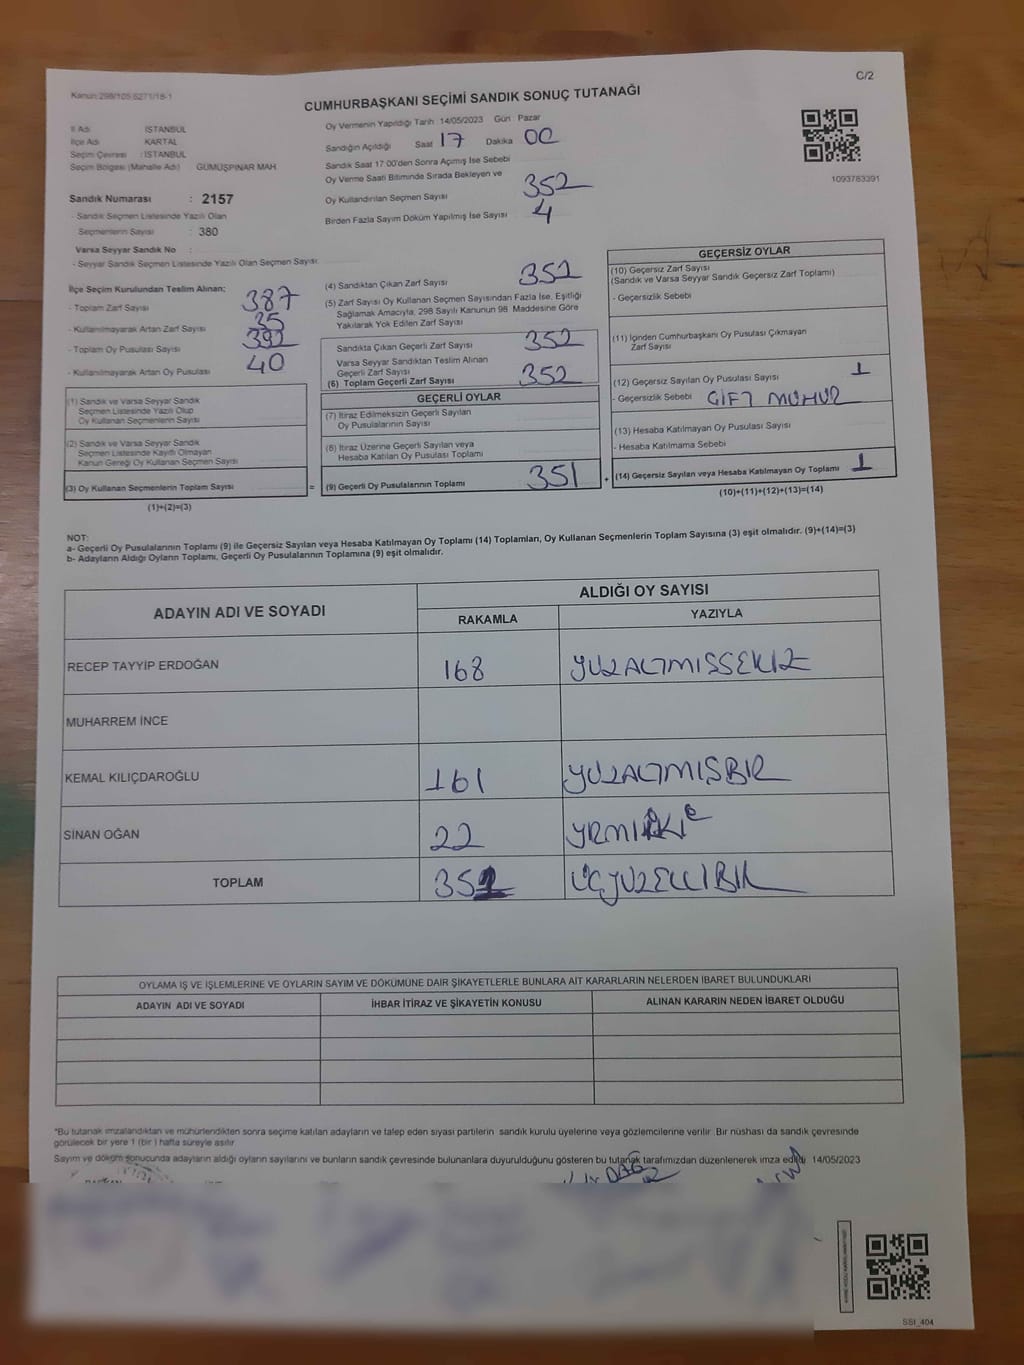 C/2
Kanun:298/105 6271/18-1
CUMHURBAŞKANI SEÇİMİ SANDIK SONUÇ TUTANAĞI
İl Adı İSTANBUL
İlçe Adı KARTAL
Seçim Çevresi : İSTANBUL
Seçim Bölgesi (Mahalle Adı) GÜMÜŞPINAR MAH.
Sandık Numarası : 2157
- Sandık Seçmen Listesinde Yazılı Olan
Seçmenlerin Sayısı : 380
Varsa Seyyar Sandık No :
- Seyyar Sandık Seçmen Listesinde Yazılı Olan Seçmen Sayısı:
Oy Vermenin Yapıldığı Tarih :14/05/2023 Gün : Pazar
Sandığın Açıldığı Saat 17 Dakika 00
Sandık Saat 17.00'den Sonra Açımış İse Sebebi
Oy Verme Saati Bitiminde Sırada Bekleyen ve
Oy Kullandırılan Seçmen Sayısı 352
Birden Fazla Sayım Döküm Yapılmış İse Sayısı 4
1093783391
İlçe Seçim Kurulundan Teslim Alınan;
- Toplam Zarf Sayısı 387
- Kullanılmayarak Artan Zarf Sayısı 35
- Toplam Oy Pusulası Sayısı 392
- Kullanılmayarak Artan Oy Pusulası 40
(1) Sandık ve Varsa Seyyar Sandık
Seçmen Listesinde Yazılı Olup
Oy Kullanan Seçmenlerin Sayısı
(2) Sandık ve Varsa Seyyar Sandık
Seçmen Listesinde Kayıtlı Olmayan
Kanun Gereği Oy Kullanan Seçmen Sayısı
(3) Oy Kullanan Seçmenlerin Toplam Sayısı
(1)+(2)=(3)
=
(4) Sandıktan Çıkan Zarf Sayısı 352
(5) Zarf Sayısı Oy Kullanan Seçmen Sayısından Fazla İse, Eşitliği
Sağlamak Amacıyla, 298 Sayılı Kanunun 98. Maddesine Göre
Yakılarak Yok Edilen Zarf Sayısı
Sandıkta Çıkan Geçerli Zarf Sayısı 352
Varsa Seyyar Sandıktan Teslim Alınan
Geçerli Zarf Sayısı
(6) Toplam Geçerli Zarf Sayısı 352
GEÇERLİ OYLAR
(7) İtiraz Edilmeksizin Geçerli Sayılan
Oy Pusulalarının Sayısı
(8) İtiraz Üzerine Geçerli Sayılan veya
Hesaba Katılan Oy Pusulası Toplamı
(9) Geçerli Oy Pusulalarının Toplamı 351
+
GEÇERSİZ OYLAR
(10) Geçersiz Zarf Sayısı
(Sandık ve Varsa Seyyar Sandık Geçersiz Zarf Toplamı)
- Geçersizlik Sebebi
(11) İçinden Cumhurbaşkanı Oy Pusulası Çıkmayan
Zarf Sayısı
(12) Geçersiz Sayılan Oy Pusulası Sayısı 1
- Geçersizlik Sebebi ÇİFT MÜHÜR
(13) Hesaba Katılmayan Oy Pusulası Sayısı
- Hesaba Katılmama Sebebi
(14) Geçersiz Sayılan veya Hesaba Katılmayan Oy Toplamı 1
(10)+(11)+(12)+(13)=(14)
NOT:
a- Geçerli Oy Pusulalarının Toplamı (9) ile Geçersiz Sayılan veya Hesaba Katılmayan Oy Toplamı (14) Toplamları, Oy Kullanan Seçmenlerin Toplam Sayısına (3) eşit olmalıdır. (9)+(14)=(3)
b- Adayların Aldığı Oyların Toplamı, Geçerli Oy Pusulalarının Toplamına (9) eşit olmalıdır.
ADAYIN ADI VE SOYADI
ALDIĞI OY SAYISI
RAKAMLA YAZIYLA
RECEP TAYYİP ERDOĞAN 168 YÜZALTMIŞSEKİZ
MUHARREM İNCE
KEMAL KILIÇDAROĞLU 161 YÜZALTMIŞBİR
SİNAN OĞAN 22 YİRMİİKİ
TOPLAM 351 ÜÇYÜZELLİBİR
OYLAMA İŞ VE İŞLEMLERİNE VE OYLARIN SAYIM VE DÖKÜMÜNE DAİR ŞİKAYETLERLE BUNLARA AİT KARARLARIN NELERDEN İBARET BULUNDUKLARI
ADAYIN ADI VE SOYADI İHBAR İTİRAZ VE ŞİKAYETİN KONUSU ALINAN KARARIN NEDEN İBARET OLDUĞU
*Bu tutanak imzalandıktan ve mühürlendikten sonra seçime katılan adayların ve talep eden siyasi partilerin sandık kurulu üyelerine veya gözlemcilerine verilir. Bir nüshası da sandık çevresinde
görülecek bir yere 1 (bir) hafta süreyle asılır.
Sayım ve döküm sonucunda adayların aldığı oyların sayılarını ve bunların sandık çevresinde bulunanlara duyurulduğunu gösteren bu tutanak tarafımızdan düzenlenerek imza edildi. 14/05/2023
SSI_404